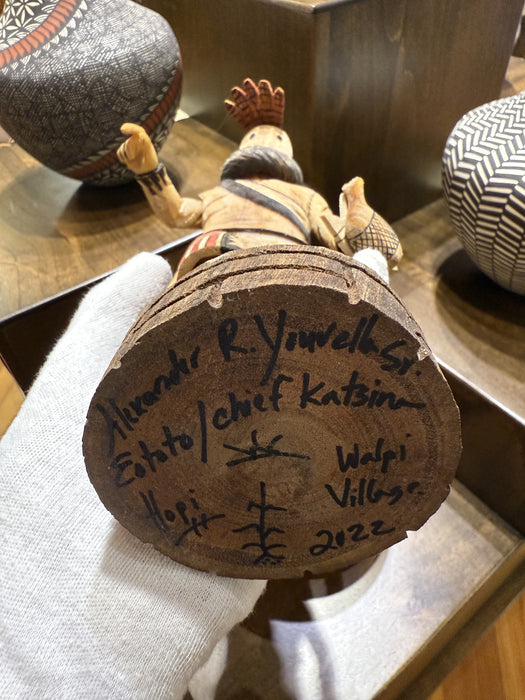 Alexander R. Youvella Sr.
Eototo/chief Katsina
Walpi
Hopi Village
2022